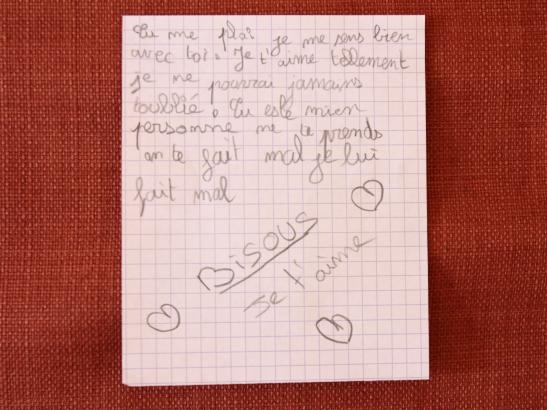 Tu me plai je me sens bien
avec toi. Je t'aime tellement
je ne pourrai jamains
t'oublié. Tu este mien
personne me te prends
on te fait mal je lui
fait mal
BISOUS
Je t'aime